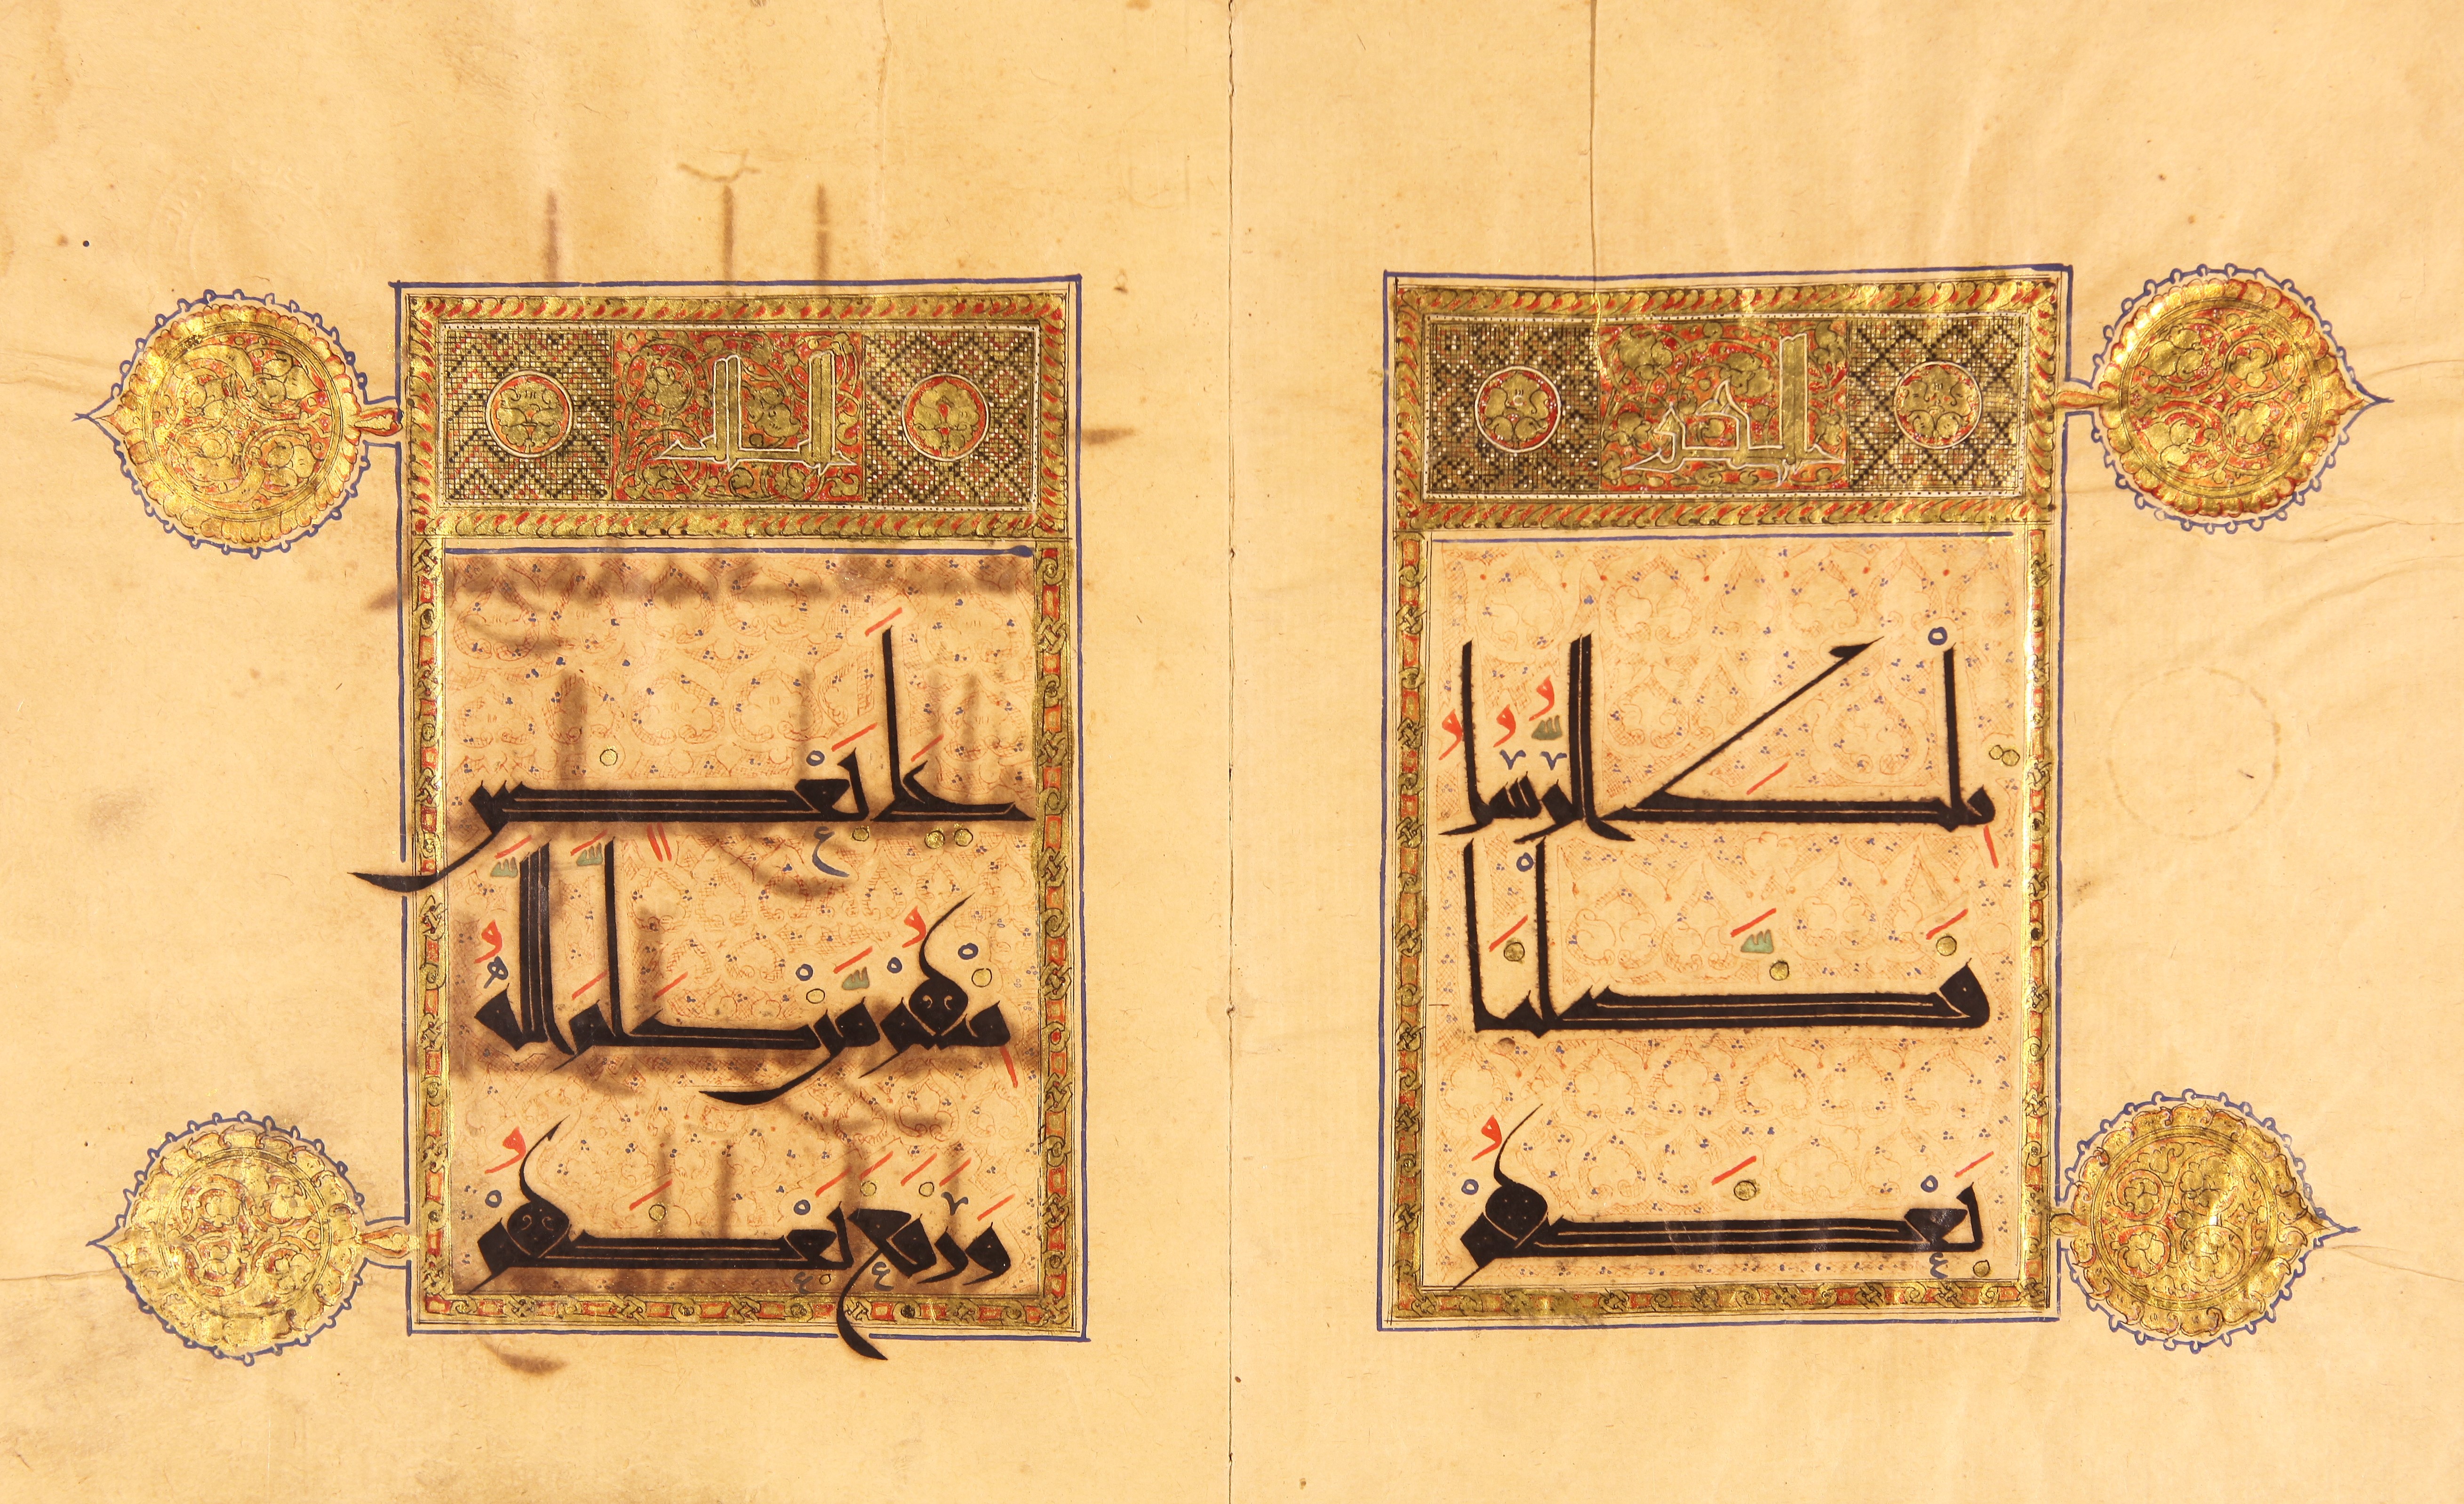 الجز
تِلْكَ الرُّسُلُ
فَضَّلْنَا
بَعْضَهُمْ
عَلَى بَعْضٍ
مِنْهُمْ مَنْ كَلَّمَ اللَّهُ
وَرَفَعَ بَعْضَهُمْ